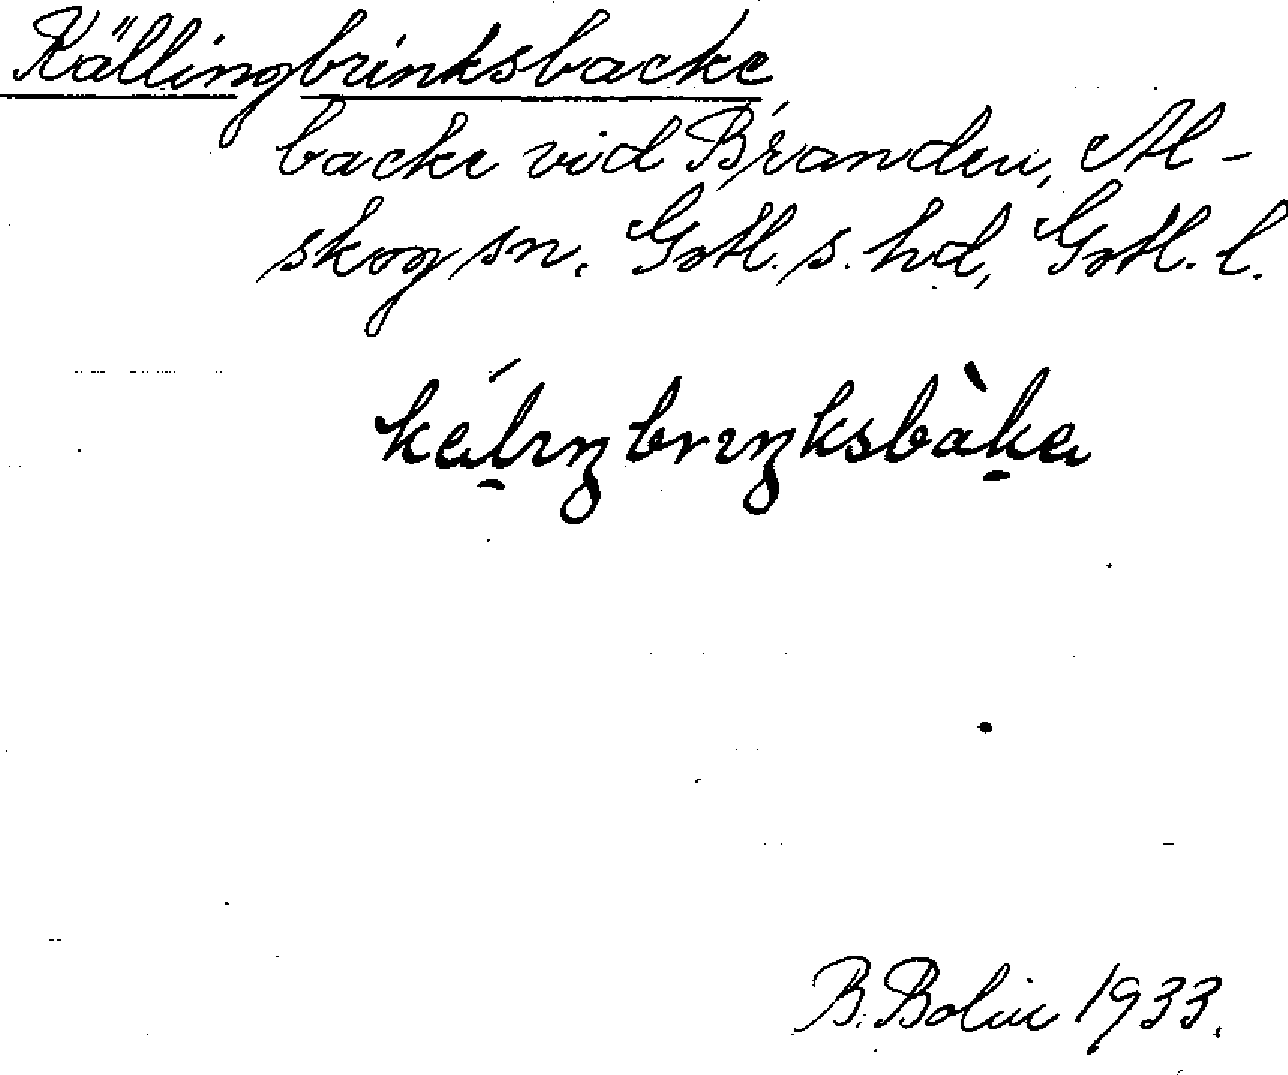 Källingbrinksbacke
backe vid Branden, Al-
skog sn. Gotl. s. hd, Gotl. l.
kälıŋbrıŋksbàka
B. Bolin 1933.